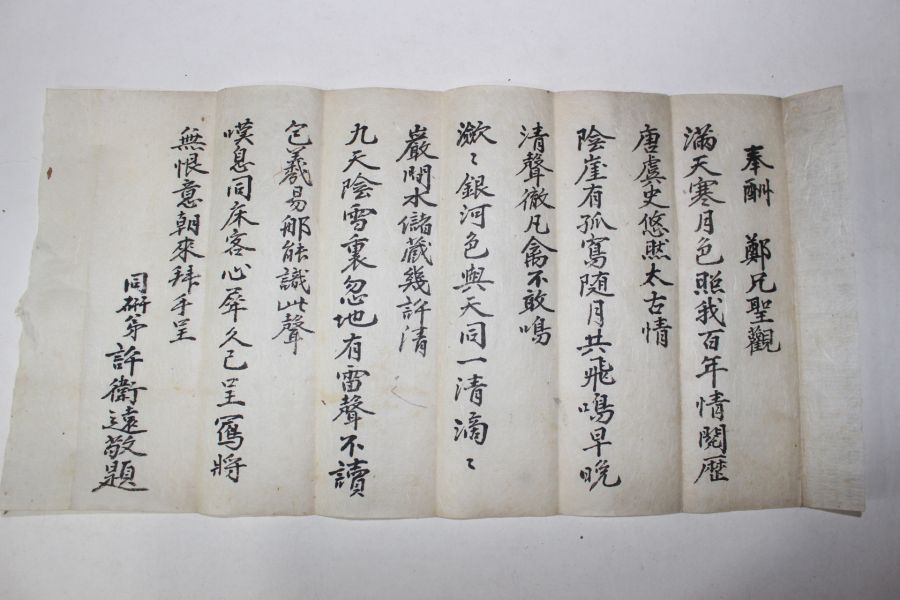 奉酬 鄭兄聖觀
滿天寒月色照我百年情閱歷
唐虞史悠然太古情
陰崖有孤寫随月共飛鳴早晩
清聲徹凡禽不敢鳴
潋〻銀河色與天同一清滴〻
巖間水儲藏幾許清
九天陰雪裏忽地有雷聲不讀
包羲易那能識此聲
嘆息同床客心犀久已呈寫將
無恨意朝來拜手呈
同硏弟許衛遠敬題